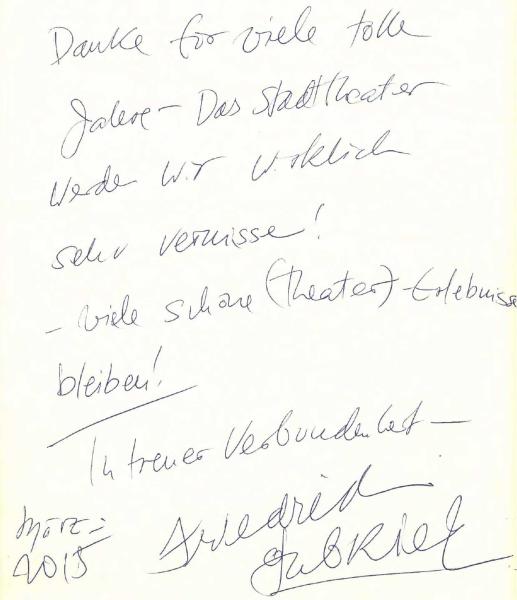 Danke für viele tolle
Jahre – Das Stadttheater
werden wir wirklich
sehr vermissen!
– viele schöne (Theater)-Erlebnisse
bleiben!
In treuer Verbundenheit –
März
2015
Friedrich
Gabriel